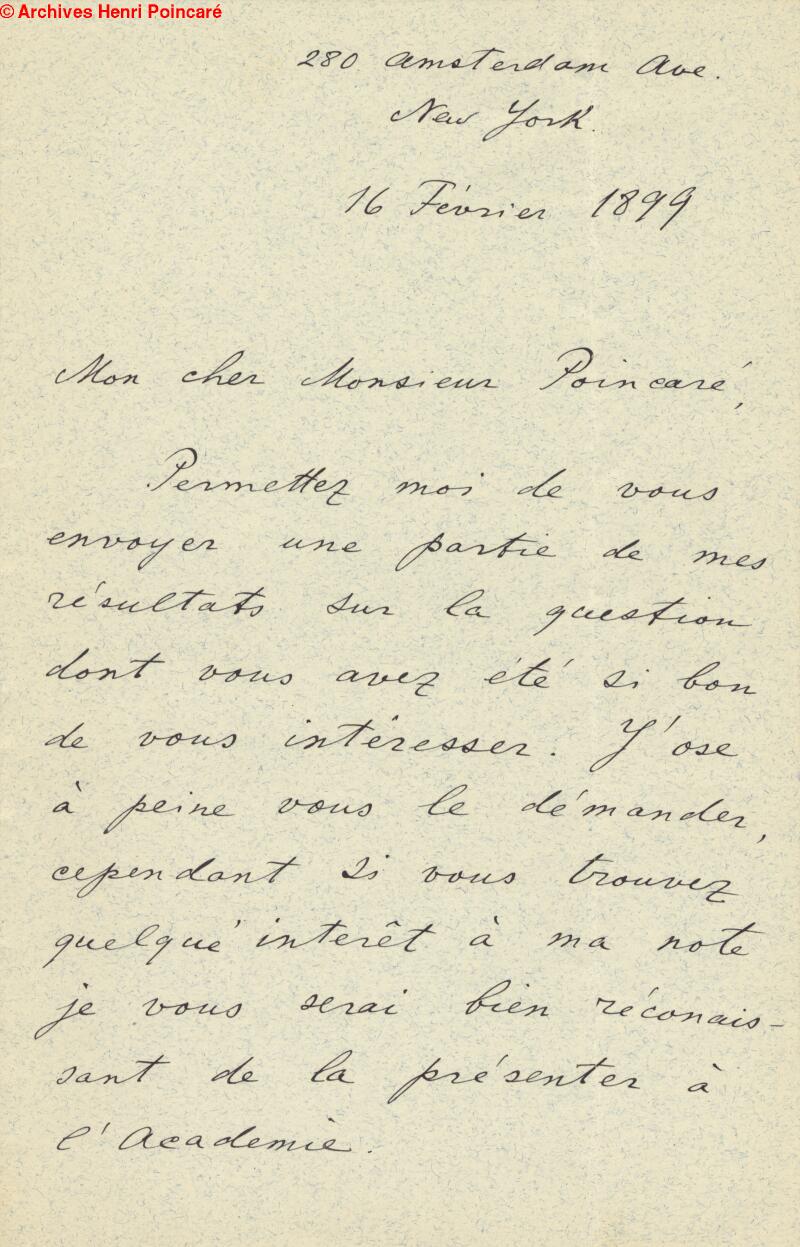 © Archives Henri Poincaré
280 Amsterdam Ave.
New York.
16 Février 1899
Mon cher Monsieur Poincaré,
Permettez moi de vous
envoyer une partie de mes
résultats sur la question
dont vous avez été si bon
de vous intéresser. J'ose
à peine vous le démander,
cependant si vous trouvez
quelqué interêt à ma note
je vous serai bien réconais-
sant de la présenter à
l'Academie.